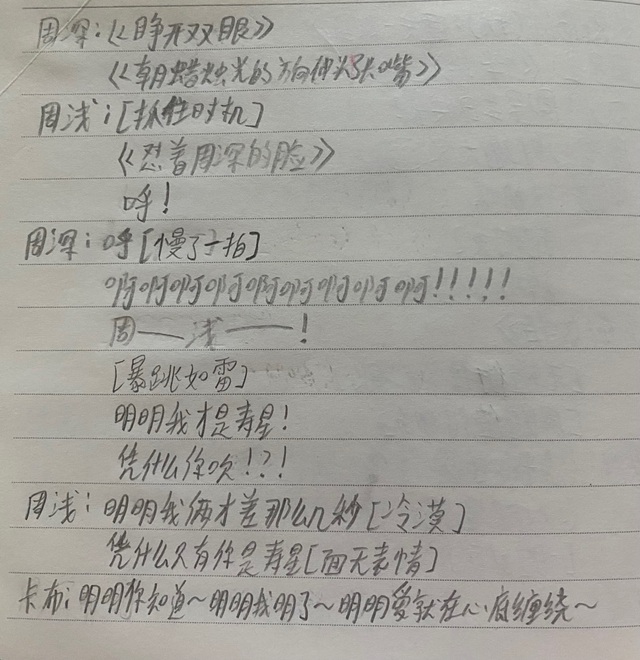 周深：《睁开双眼》
《朝蜡烛光的方向伸头张大嘴》
周浅：[抓住时机]
《忍着周深的脸》
呼！
周深：呼[慢了一拍]
啊啊啊啊啊啊啊啊啊！！！！！
周——浅——！
[暴跳如雷]
明明我才是寿星！
凭什么你吹！？！
周浅：明明我俩才差那么几秒[冷漠]
凭什么只有你是寿星[面无表情]
卡布：明明你知道～明明我明了～明明爱就在心底缠绕～